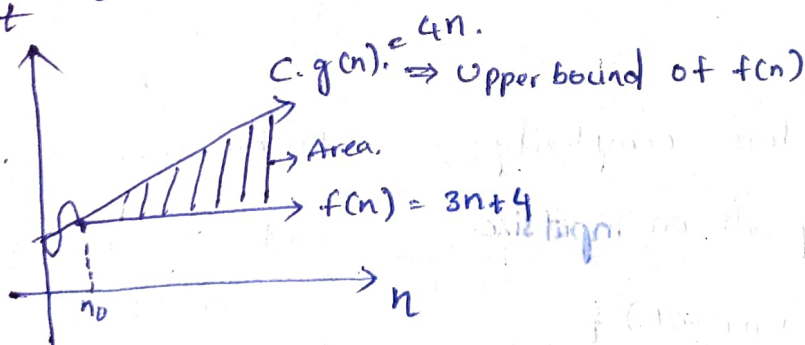 t
C.g(n). = 4n.
⇒ Upper bound of f(n)
→ Area.
f(n) = 3n+4
n₀
n